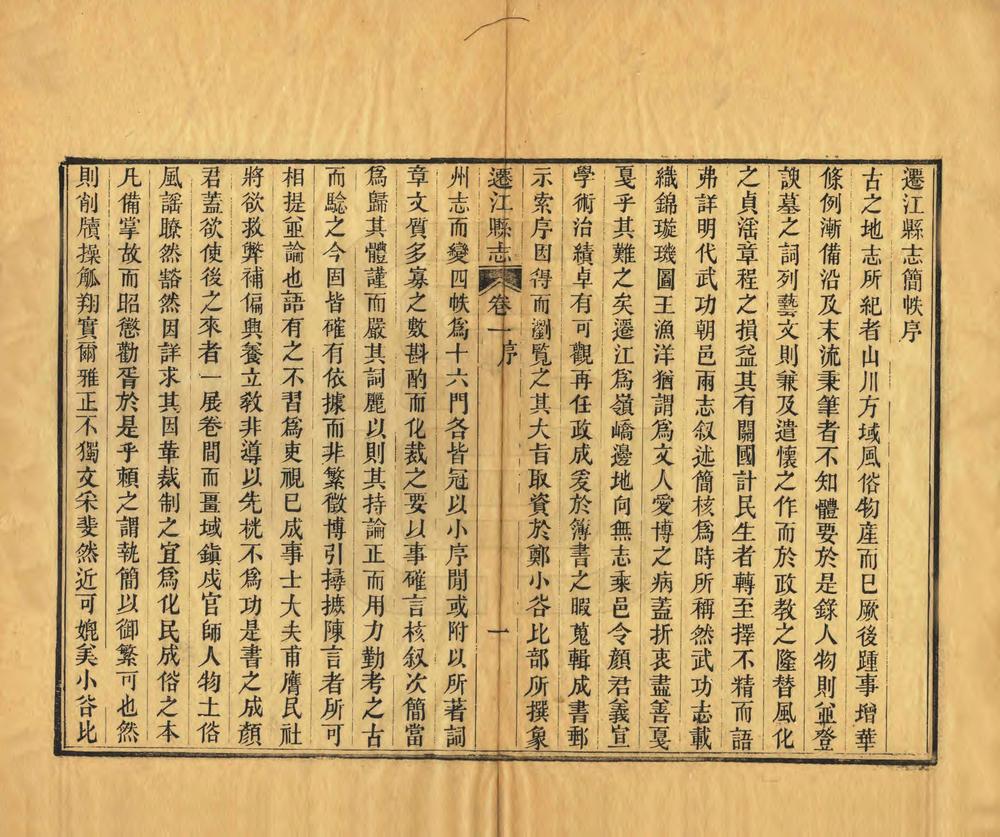 遷江縣志簡帙序
古之地志所紀者山川方域風俗物產而已厥後踵事增華
條例漸備沿及末流秉筆者不知體要於是錄人物則並登
諛墓之詞列藝文則兼及遣懷之作而於政教之隆替風化
之貞淫章程之損益其有關國計民生者轉至擇不精而語
弗詳明代武功朝邑兩志叙述簡核爲時所稱然武功志載
織錦璇璣圖王漁洋猶謂爲文人愛博之病蓋折衷盡善戛
戛乎其難之矣遷江爲嶺嶠邊地向無志乘邑令顏君義宣
學術治績卓有可觀再任政成爰於簿書之暇蒐輯成書郵
示索序因得而瀏覽之其大旨取資於鄭小谷比部所撰象
遷江縣志 卷一 序 一
州志而變四帙爲十六門各皆冠以小序間或附以所著詞
章文質多寡之數斟酌而化裁之要以事確言核叙次簡當
爲歸其體謹而嚴其詞麗以則其持論正而用力勤考之古
而騐之今固皆確有依據而非繁徵博引撏撦陳言者所可
相提並論也語有之不習爲吏視已成事士大夫甫膺民社
將欲救弊補偏興養立教非導以先桄不爲功是書之成顏
君蓋欲使後之來者一展卷間而畺域鎮戍官師人物土俗
風謡瞭然豁然因詳求其因革裁制之宜爲化民成俗之本
凡備掌故而昭懲勸胥於是乎賴之謂執簡以御繁可也然
則削牘操觚翔實爾雅正不獨文采斐然近可媲美小谷比